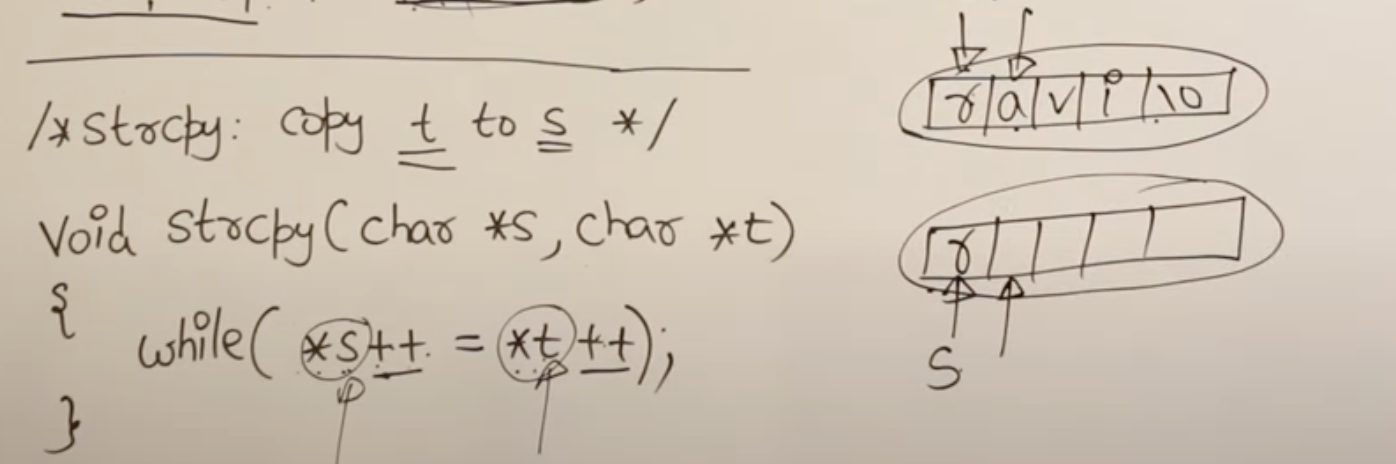 /* strcpy: copy t to s */
void strcpy(char *s, char *t)
{
while( *s++ = *t++);
}
r a v i \0
r
S